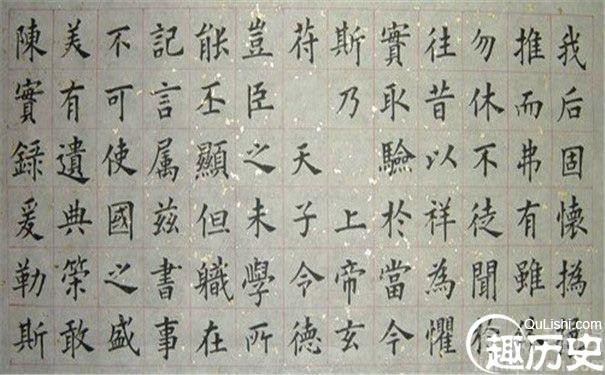 我后固懷撝
推而弗有雖
勿休不徒聞於
往昔以祥為懼
實取驗於當今
斯乃 上帝玄
苻 天子令德
豈臣之末學所
能丕顯但軄在
記言属茲書事
不可使國之盛
美有遺典策敢
陳實録爰勒斯
QuLishi.com
趣历史